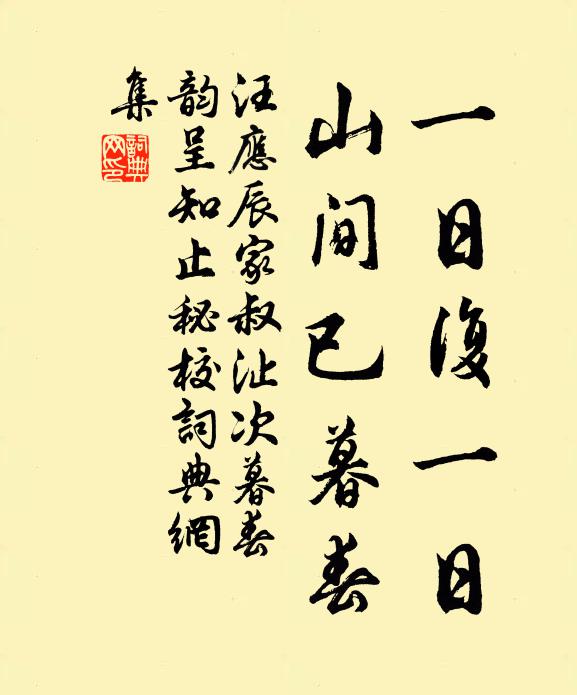 一日復一日
山間已暮春
汪應辰家叔沚次暮春
韵呈知止秘校詞典網
集
詞典網印